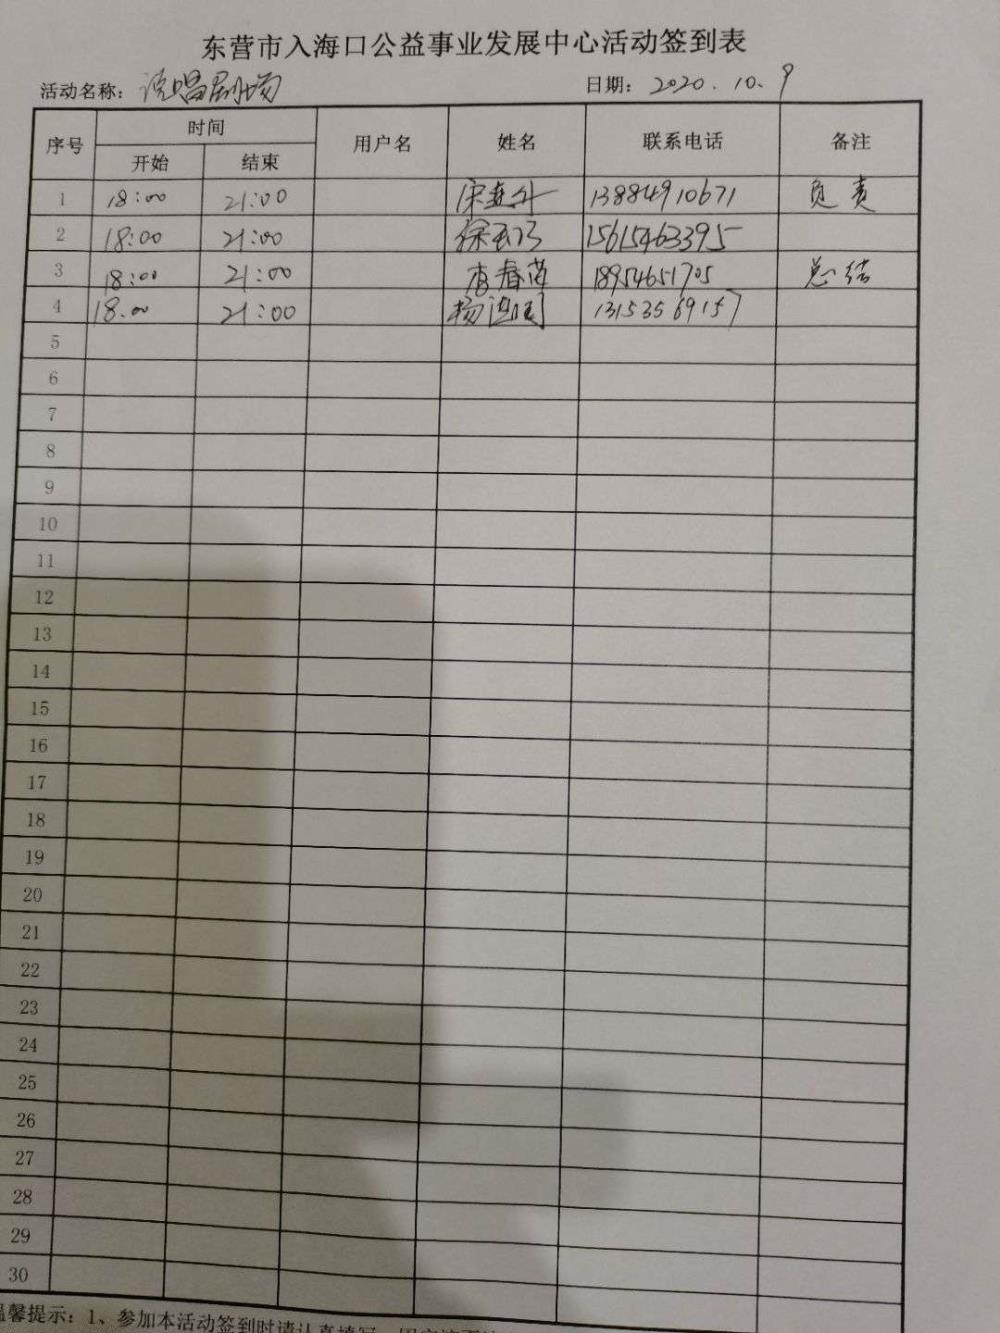 东营市入海口公益事业发展中心活动签到表
活动名称：说唱剧场 日期：2020.10.9
序号 时间 用户名 姓名 联系电话 备注
开始 结束
1 18:00 21:00 13884910671 负责
2 18:00 21:00 15615463395
3 18:00 21:00 李春苗 18954651705 总结
4 18.00 21:00 13153569157
5
6
7
8
9
10
11
12
13
14
15
16
17
18
19
20
21
22
23
24
25
26
27
28
29
30
温馨提示：1、参加本活动签到时请认真填写